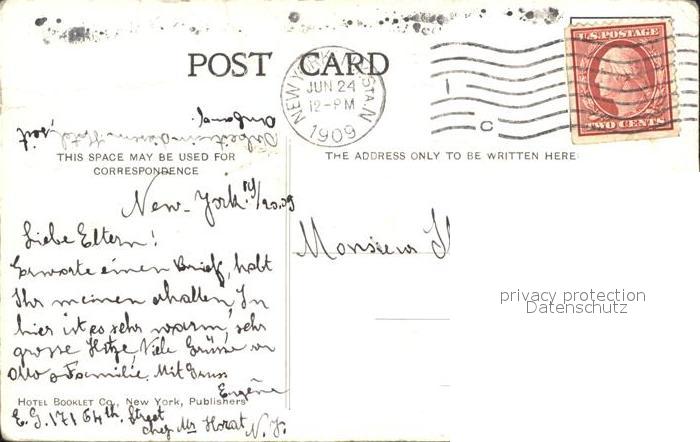 POST CARD
NEW YORK STA. N
JUN 24
12-PM
1909
U.S. POSTAGE
TWO CENTS
C
THIS SPACE MAY BE USED FOR
CORRESPONDENCE
THE ADDRESS ONLY TO BE WRITTEN HERE
New-York
Liebe Eltern!
Erwarte einen Brief, habt
Ihr meinen erhalten,
hier ist es sehr warm, sehr
grosse Hitze, Viele Grüsse an
Otto & Familie. Mit Gruss
Eugène
HOTEL BOOKLET CO., New York, Publishers
E. G. 171 64th. Street
chez Mr Horat N. Y.
Monsieur
privacy protection
Datenschutz